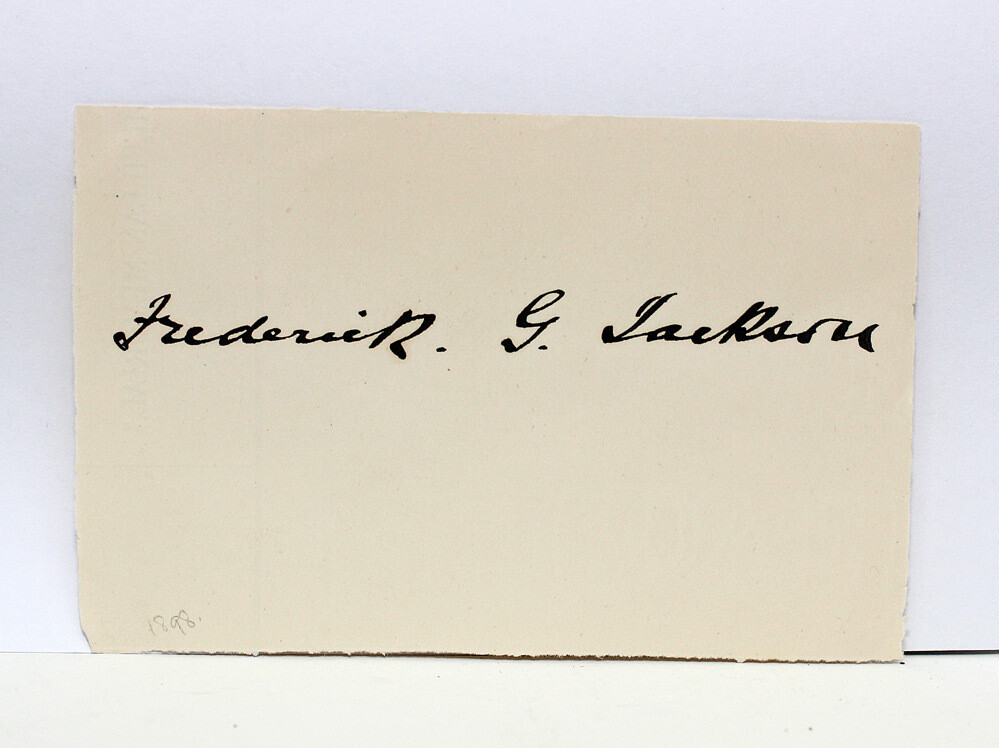 Frederick. G. Jackson
1898.